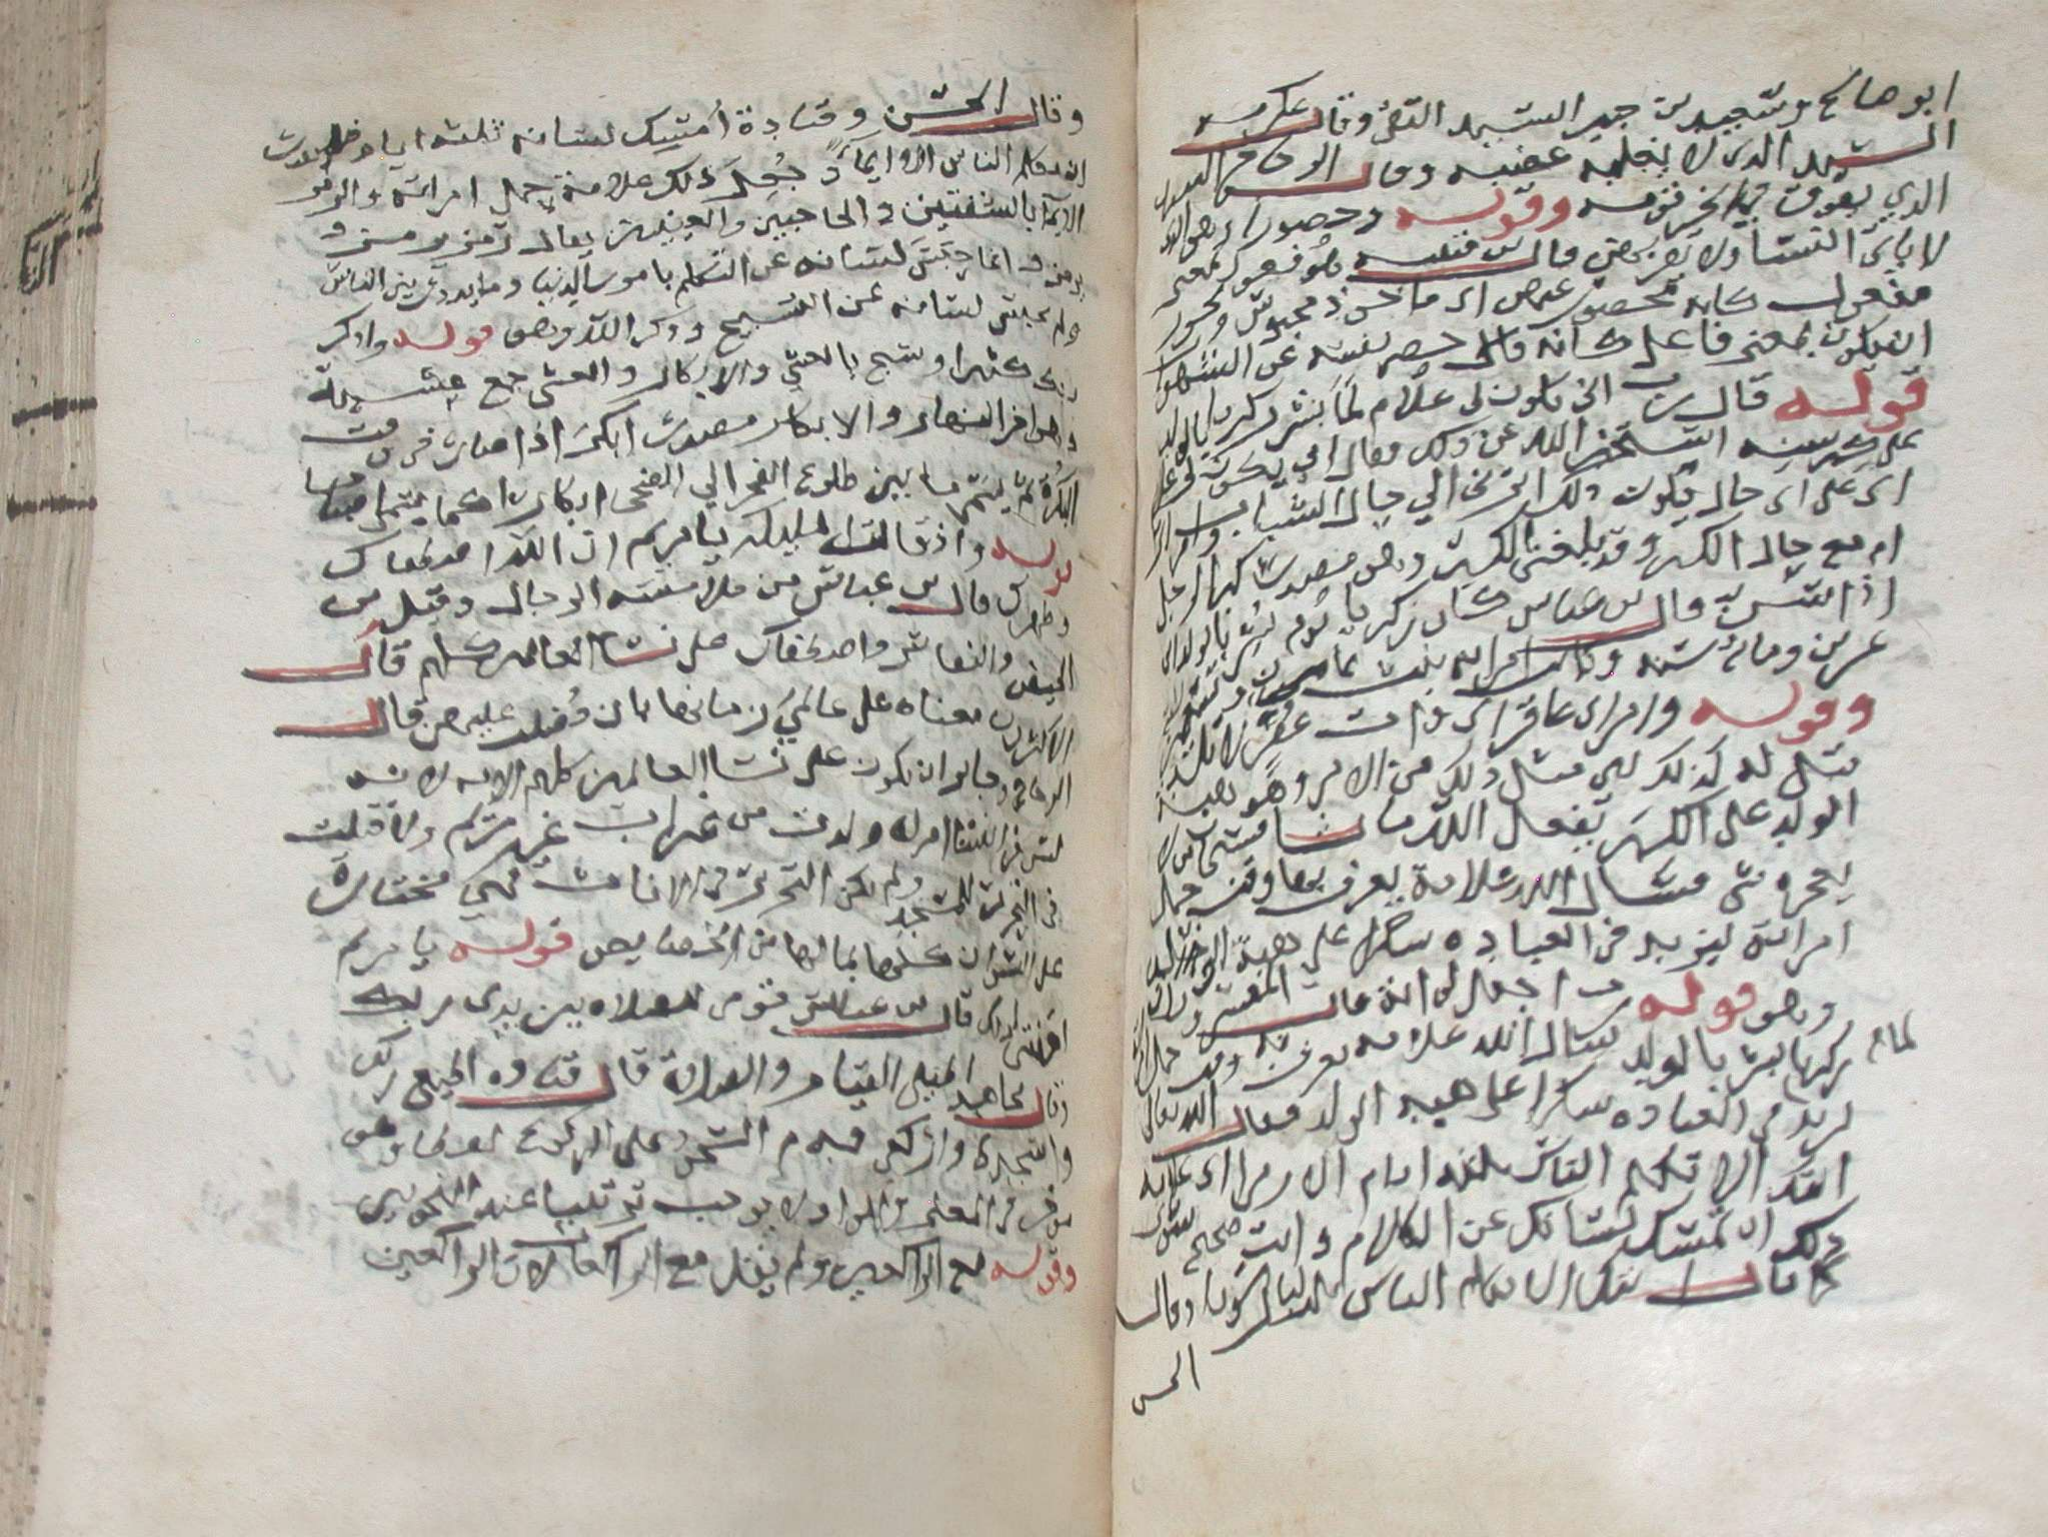 ابو صالح وسعيد بن جبير السيد التقي وقال عكرمه
السيد الذي لا يغلبه غضبه وقال الزجاج السيد
الذي يفوق في الخير قومه وقوله وحصورا وهو الذي
لا ياتي النسا ولا يقربهن قال بن قتيبه هو فعول بمعنى
مفعول كانه محصور عنهن اي ماخوذ محبوس ويجوز
ان يكون بمعنى فاعل كانه قال حصر نفسه عن الشهوات
قوله قال رب انى يكون لي غلام لما بشر زكريا بالولد
على كبر سنه استخبر الله عن ذلك فقال اني يكون لي غلام
اي على اي حال يكون ذلك اتردني الي حال الشباب وامراتي
ام مع حال الكبر وقد بلغني الكبر وهو مصدر كبر الرجل
اذا اسن قال بن عباس كان زكريا يوم بشر بالولد ابن
عشرين ومائة سنة وكانت امراته بنت ثمان وتسعين
وقوله وامراتي عاقر اي ذات عقر لا تلد
قيل له كذلك اي مثل ذلك من الامر وهو هبة
الولد على الكبر يفعل الله ما يشا
يعجزه شي فسال الله علامة يعرف بها وقت حمل
امراته ليزيد في العباده شكرا على هبة الولد
وهو قوله رب اجعل لي اية قال المفسرون ان
زكريا لما بشر بالولد سال الله علامه يعرف بها وقت حمل
ليزيد في العباده شكرا على هبه الولد فقال الله تعالى
ايتك الا تكلم الناس ثلثه ايام الا رمزا اي علامه
ذلك ان تمسك لسانك عن الكلام وانت صحيح سوي
كما قال ايتك الا تكلم الناس ثلث ليال سويا وقال
الحسن
وقال الحسن وقتادة امسك لسانه ثلثه ايام فلم يقدر
ان يكلم الناس الا ايماء جعل ذلك علامة حمل امراته والرمز
الايما بالشفتين والحاجبين والعينين يقال رمز يرمز و
يرمز وانما حبس لسانه عن التكلم بامور الدنيا وما يدور بين الناس
ولم يحبس لسانه عن التسبيح وذكر الله وهو قوله واذكر
ربك كثيرا وسبح بالعشي والابكار والعشي جمع عشية
وهو اخر النهار والابكار مصدر ابكر اذا صار في وقت
البكرة ثم يسمى ما بين طلوع الفجر الي الضحى ابكارا كما يسمى اصباحا
قوله واذ قالت المليكة يا مريم ان الله اصطفاك
وطهرك قال بن عباس من ملامسة الرجال وقيل من
الحيض والنفاس واصطفاك على نسا العالمين كلهم قال
الاكثرون معناه على عالمي زمانها بان فضلت عليهن قال
الزجاج وجايز ان يكون على نسا العالمين كلهم لانه
ليس في النسا امراة ولدت من غير اب غير مريم ولا قبلت
في النذر للمسجد ولم يكن التحرير في الاناث فهي مختارة
على النسوان كلها بمالها من الخصايص قوله يا مريم
اقنتي لربك قال بن عباس قومي للصلاه بين يدي ربك
وقال مجاهد اطيلي القيام والصلاة قال قتاده اطيعي ربك
واسجدي واركعي قدم السجود على الركوع لفظا وهو
موخر في المعنى والواو لا يوجب ترتيبا عند النحويين
وقوله مع الراكعين ولم يقل مع الراكعات لان الراكعين